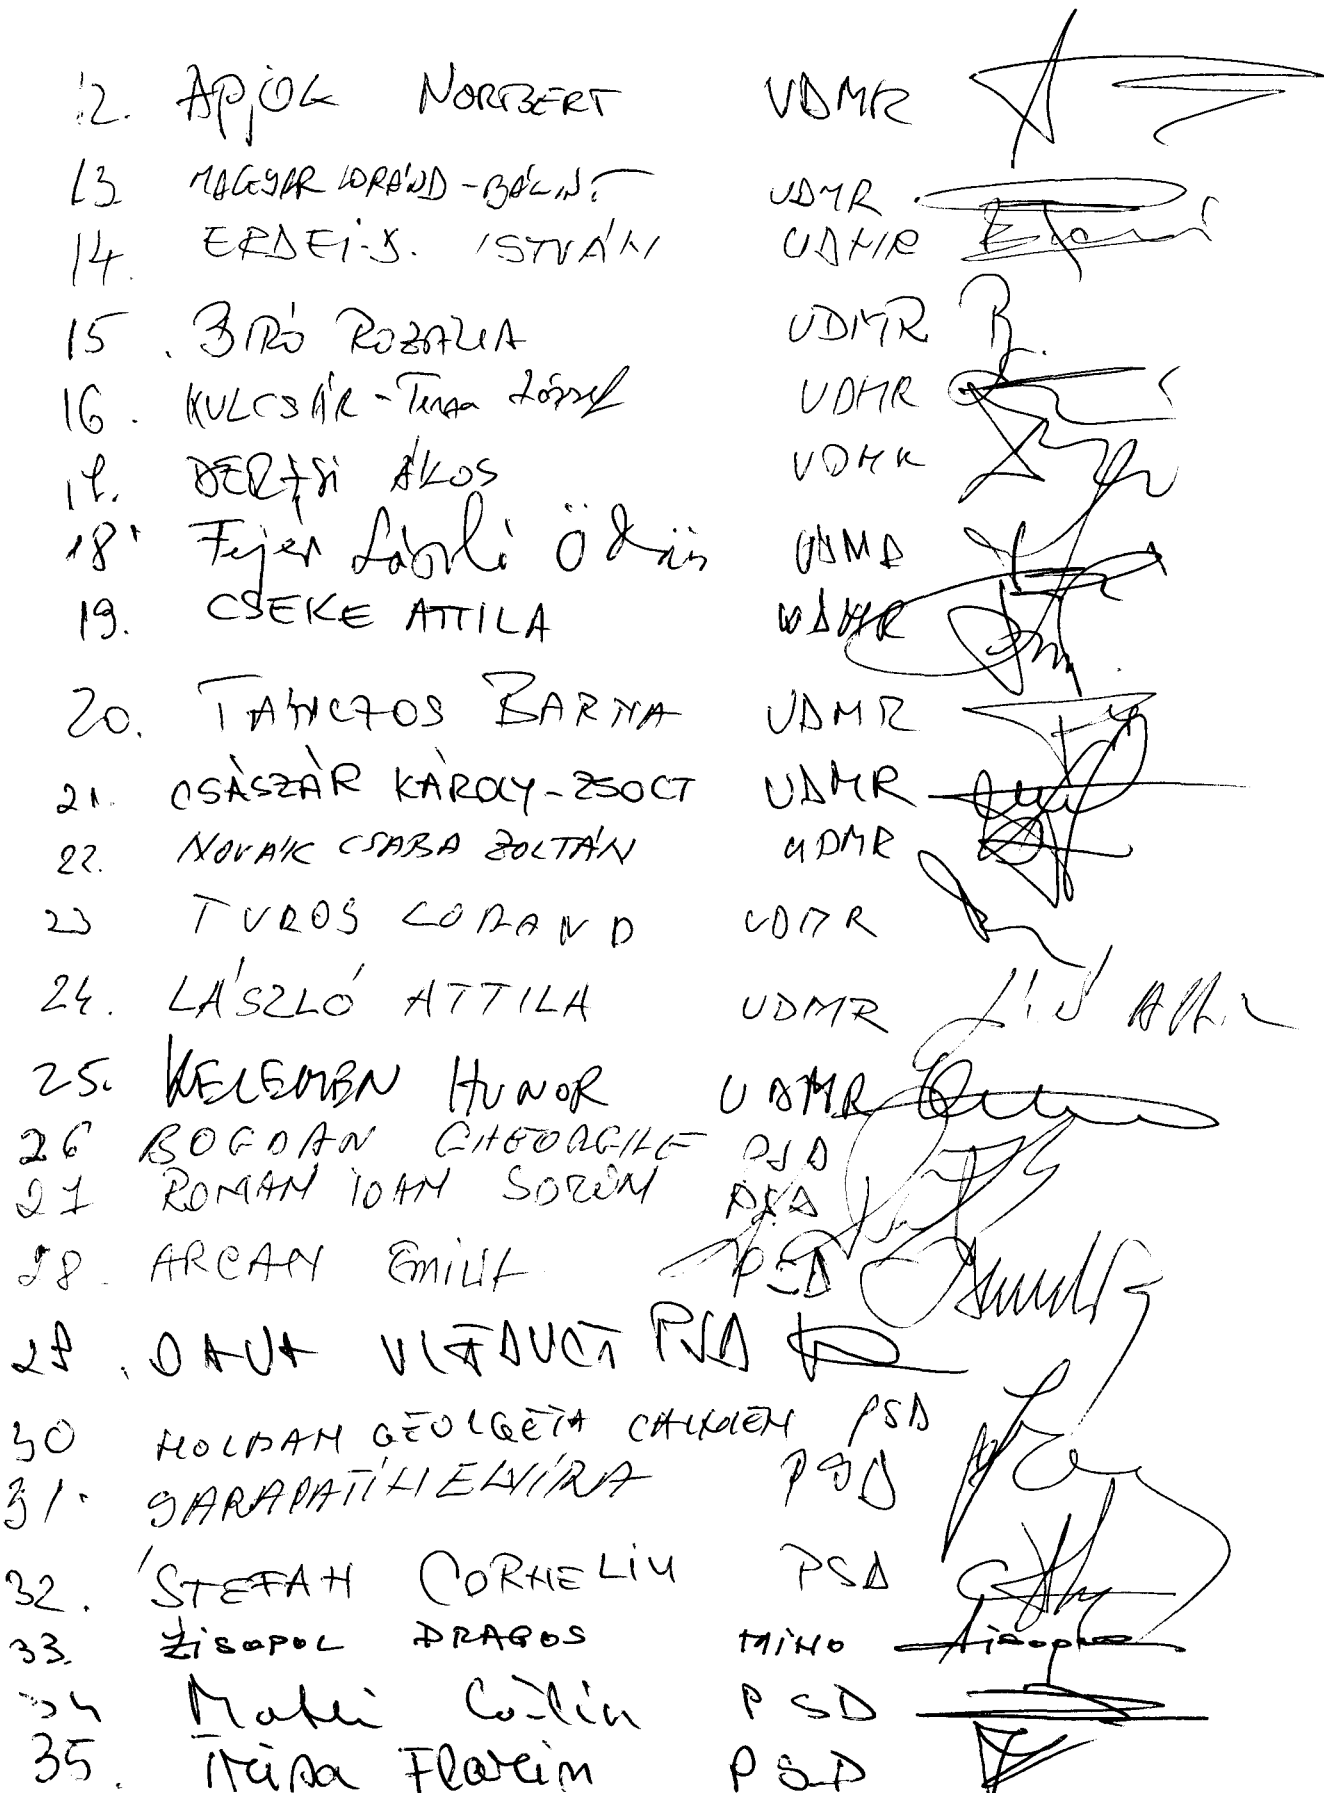 12. APJOK NORBERT UDMR
13 MAGYAR LORÁND-BÁLINT UDMR
14. ERDEI-D. ISTVÁN UDMR
15. BIRÓ ROZALIA UDMR
16. KULCSÁR-Terza József UDMR
17. DERZSI ÁKOS UDMR
18. Fejér László Ödön UDMR
19. CSEKE ATTILA UDMR
20. TANCZOS BARNA UDMR
21. CSÁSZÁR KÁROLY-ZSOLT UDMR
22. NOVÁK CSABA ZOLTÁN UDMR
23 TUROS LORAND UDMR
24. LÁSZLÓ ATTILA UDMR
25. KELEMEN HUNOR UDMR
26 BOGDAN GHEORGHE PSD
27 ROMAN IOAN SORIN PSD
28. ARCAN Emilia PSD
29. PSD
30 MOLDAN GEORGETA CARMEN PSD
31. SARAPATIN ELVIRA PSD
32. STEFAN CORNELIU PSD
33. ZISOPOL DRAGOS MINO
34 Matei Călin PSD
35. Florin PSD